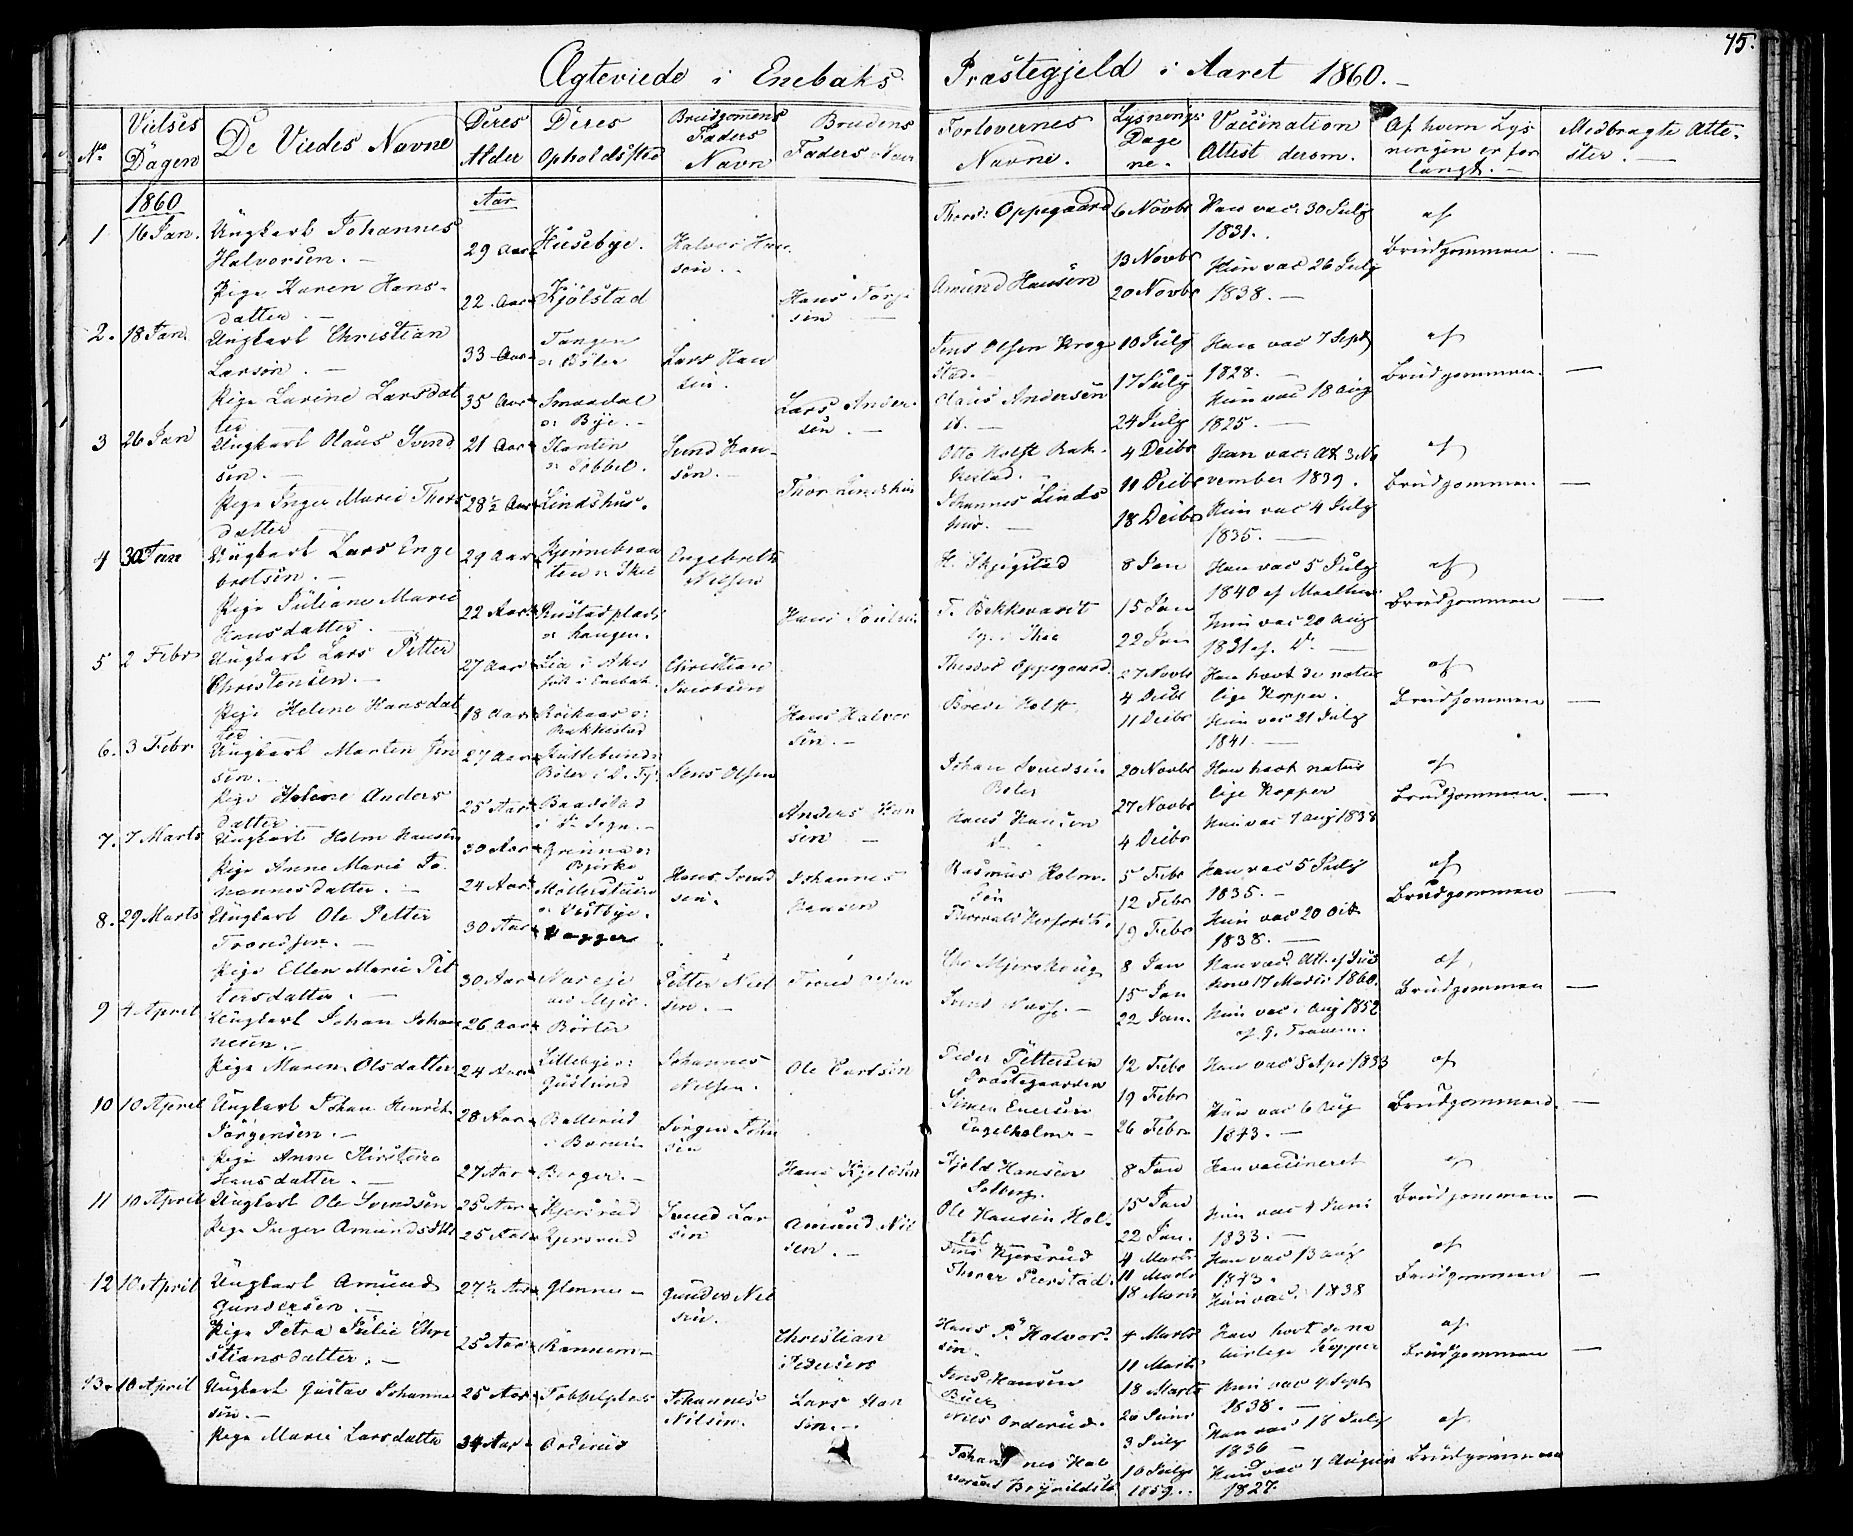 75.
Ægteviede i Enebaks Præstegjeld i Aaret 1860.
No
Vielses Dagen
De Viedes Navne
Deres Alder
Deres Opholdssted
Brudgommens Faders Navn
Brudens Faders Navn
Forlovernes Navne.
Lysnings Dagene.
Vaccination Attest derom.
Af hvem Lysningen er forlangt.
Medbragte Attester.
1860
Aar
1 16 Jan. Ungkarl Johannes Halvorsen. 29 Aar Husebye. Halvor Hansen.
Pige Karen Hansdatter 22 Aar Kjölstad Hans
Thord: Oppegaard
Amund Hansen
6 Novbr
13 Novbr
20 Novbr
Han vac: 30 July 1831.
Hun vac 26 July 1838.
af Brudgommen
2. 18 Jan Ungkarl Christian Larsen. 33 Aar Tangen Böler Lars Hansen.
Pige Larine Larsdatter 35 Aar Smaadal Bye. Lars Andersen
Jens Olsen Krogstad.
Andersen
10 July
17 July
24 July
Han vac 7 Sept 1828.
Hun vac 18 Aug 1825.
af Brudgommen.
3 26 Jan Ungkarl Olaus Svendsen. 21 Aar Tobbel. Svend Hansen.
Pige Inger Marie Thorsdatter 28½ Aar Lindshus. Thor Lindshus
Otto Holst
Johannes Lindshus.
4 Decbr
11 Decbr
18 Decbr
Han vac: Att 3 November 1839.
Hun vac 4 July 1835.
af Brudgommen.
4 30 Jan Ungkarl Lars Engebretsen. 29 Aar Engebreth Nilsen
Pige Juliane Marie Hansdatter. 22 Aar Rustadplads Hans
H. Skjegstad
8 Jan
15 Jan
22 Jan
Han vac 5 July 1840 af
Hun vac 20 Aug 1831 af
af Brudgommen
5 2 Febr Ungkarl Lars Petter Christensen. 27 Aar Lia i Aker Christian Jacobsen
Pige Helene Hansdatter 18 Aar Hans Halvorsen.
Theodor Oppegaard.
Brede Holst
27 Novbr
4 Decbr
11 Decbr
Han havt de naturlige Kopper.
Hun vac 21 July 1841.
af Brudgommen
6. 3 Febr. Ungkarl Martin Jensen. 27 Aar Jens Olsen
Pige Helene Andersdatter 25 Aar Baadstad Anders Hansen
Johan Svendsen Böler
Hans Hansen
20 Novbr
27 Novbr
4 Decbr
Han havt naturlige Kopper
Hun vac 7 Aug 1838
af Brudgommen.
7. 7 Marts Ungkarl Holm Hansen 30 Aar Bjerke Hans Svendsen.
Pige Anne Marie Johannesdatter. 24 Aar Vestbye. Johannes Hansen
Rasmus Holm
5 Febr
12 Febr
19 Febr
Han vac 5 July 1835.
Hun vac 20 Oct 1838.
af Brudgommen
8. 29 Marts Ungkarl Ole Petter Trondsen. 30 Aar Vagger
Pige Ellen Marie Pettersdatter. 30 Aar Petter Nielsen. Trond Olsen
8 Jan
15 Jan
22 Jan.
17 Marts 1860.
Hun vac: Aug 1852
af Brudgommen
9 4 April Ungkarl Johan Johannesen. 26 Aar Börter Johannes Nilsen.
Pige Maren Olsdatter 24 Aar Lillebye Gusland Ole
Peder Pettersen Præstegaarden
Simen Enersen Engelholm
12 Febr
19 Febr
26 Febr
Han vac 8 Apr 1833
Hun vac 6 Aug 1843.
af Brudgommen.
10 10 April Ungkarl Johan Henrik Jörgensen. 28 Aar Ballerud Jörgen
Pige Anne Kirstine Hansdatter. 27 Aar Berger. Hans Kjeldsen
Kjeld Hansen Solberg.
Ole Hansen
8 Jan
15 Jan
22 Jan.
Han vaccineret
Hun vac 4 Juni 1833.
af Brudgommen
11 10 April Ungkarl Ole Svendsen 25 Aar Kjersrud Svend Larsen
Pige Inger Amundsdtr 25 Aar Kjersrud Amund Nilsen.
Jens Kjersrud
4 Marts
11 Marts
18 Marts
Han vac 13 Aug 1843.
Hun vac. 1838
af Brudgommen
12 10 April Ungkarl Amund Gundersen. 27½ Aar Glenne Gunder Nilsen.
Pige Petra Julie Christiansdatter. 25 Aar Rannem Christian Pedersen
Hans P. Halvorsen.
Jens Hansen
4 Marts
11 Marts
18 Marts
Han havt de naturlige Kopper
Hun vac 4 Sept 1838.
af Brudgommen
13. 10 April Ungkarl Gustav Johannesen. 25 Aar Tobbelplads Johannes Nilsen.
Pige Marie Larsdatter 34 Aar Orderud Lars Hansen.
Nils Orderud.
Johannes Halvorsen
20 Juni
3 July
10 July 1859.
Han vac 18 July 1836
Hun vac 7 August 1827.
af Brudgommen